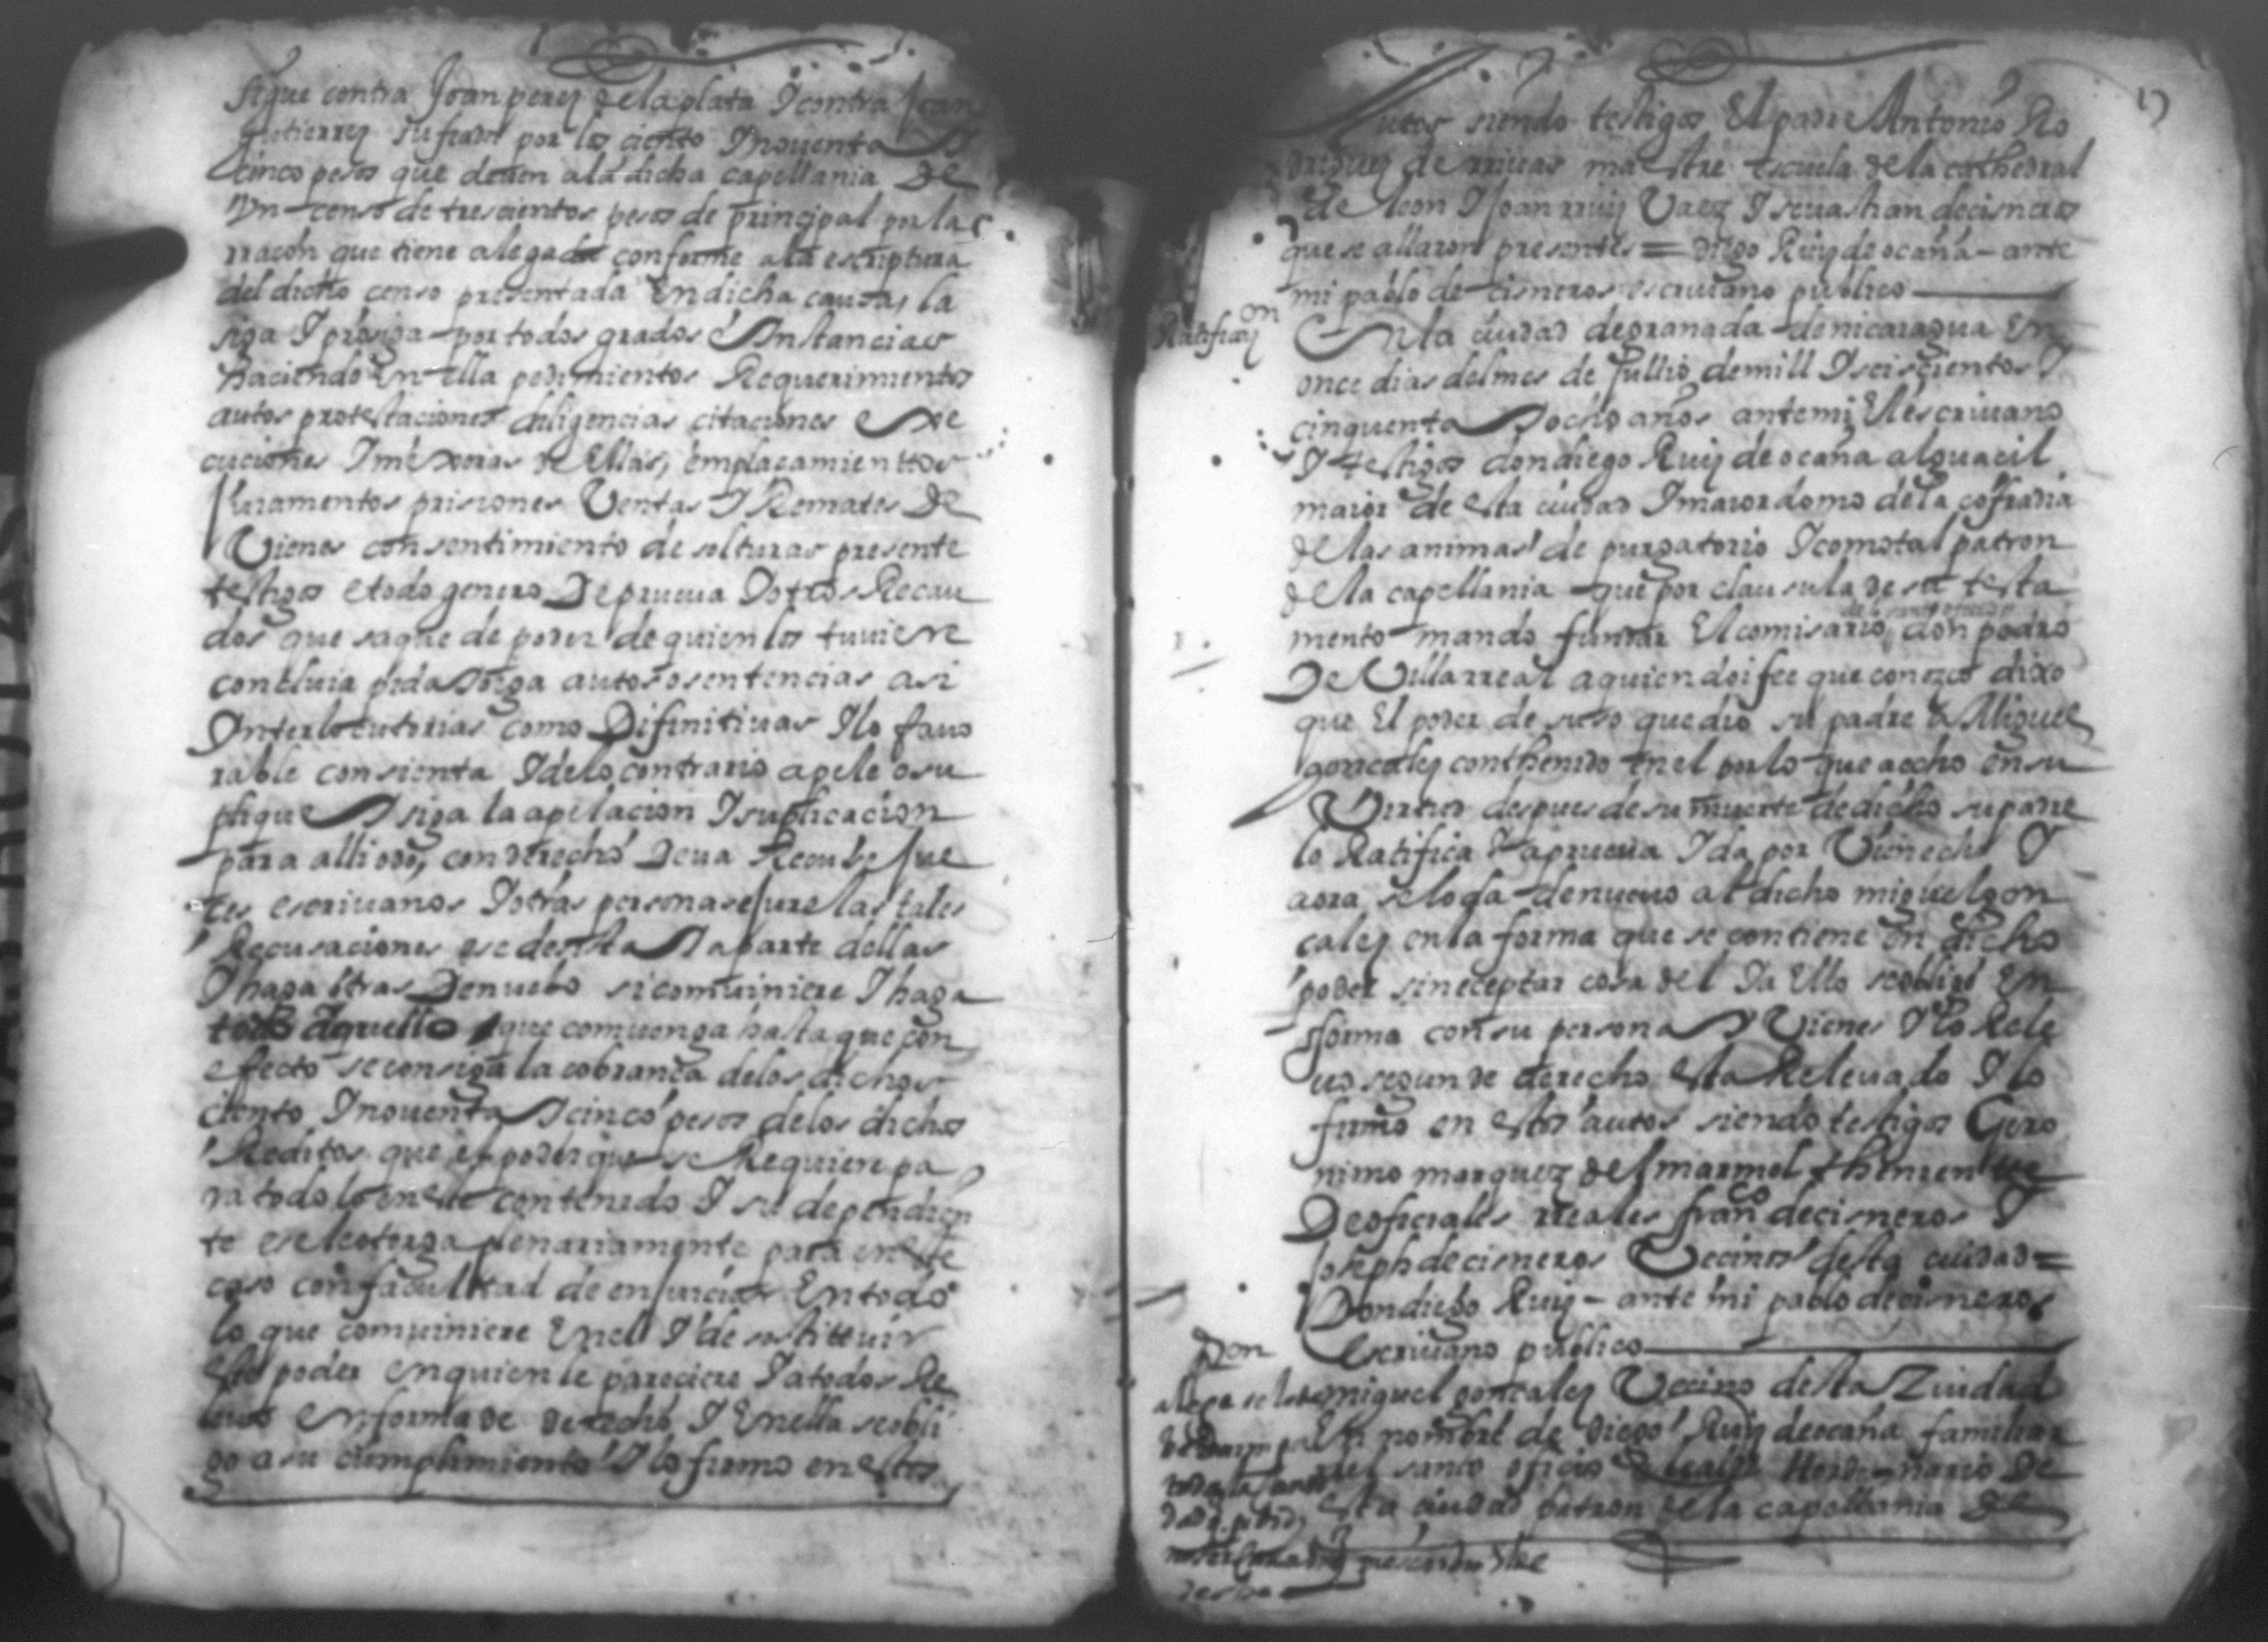 sigue contra Joan perez de la plata I contra Joan
gutierrez su fiador por los ciento I nouenta I
cinco pesos que deuen a la dicha capellania de
Vn censo de trescientos pesos de principal por la
rracon que tiene alegada conforme a la escriptura
del dicho censo presentada En dicha causa, la
siga I prosiga por todos grados e Instancias
haciendo En ella pedimientos Requerimientos
autos protestaciones diligencias citaciones exe
cuciones I mexoras de Ellas, emplacamienttos
Juramentos prisiones Ventas I Remates de
Vienes consentimiento de solturas presente
testigos e todo genero De prueua I otros Recau
dos que saque de poder de quien los tuuiere
concluia pida I oiga autos o sentencias asi
Interlocutorias como Difinitiuas I lo fauo
rable consienta I de lo contrario apele o su
plique I siga la apelacion I suplicacion
para alli odo, con derecho Deua Recuse Jue
ces escriuanos I otras personas e Jure las tales
Recusaciones e se desista I aparte dellas
I haga otras De nuebo si comuiniere I haga
todo aquello que comuenga hasta que con
efecto se consiga la cobranca de los dichos
ciento I nouenta I cinco pesos de los dichos
Reditos que el poder que se Requiere pa
ra todo lo en el contenido I su dependien
te ese le otorga plenariamente para en este
caso con facultad de enJuiciar En todo
lo que comuiniere En el I de sostituir
este poder en quien le pareciere I a todos Re
leuo en forma de derecho I En ella se obli
go a su cumplimiento I lo firmo en estos
autos siendo testigos El padre Antonio Ro
driguez de rriuas maestre escuela de la cathedral
de leon I Joan rruiz Vaez I seuastian de cisneros
que se allaron presentes = diego Ruiz de ocaña – ante
mi pablo de cisneros escriuano publico
Ratificaz on
En la ciudad de granada de nicaragua En
once dias del mes de Jullio de mill I seiscientos I
cinquenta I ocho años ante mi El escriuano
I testigos don diego Ruiz de ocaña alguacil
maior de esta ciudad I maiordomo de la cofradia
de las animas de purgatorio I como tal patron
de la capellania que por clausula de su testa
mento mando fundar El comisario del santo oficio don pedro
De Villarreal a quien doi fee que conozco dixo
que El poder de suso que dio su padre a Miguel
goncalez conthenido en el por lo que a ocho en su
Virtud despues de su muerte de dicho su padre
lo Ratifica I aprueua I da por Vien echo I
aora se lo da de nueuo al dicho miguel gon
calez en la forma que se contiene en dicho
poder sin eceptar cosa del I a Ello se obligo En
fforma con su persona I Vienes I lo Rele
uo segun de derecho esta Releuado I lo
firmo en estos autos siendo testigos Gero
nimo marquez del marmol theniente
De oficiales rreales franco de cisneros I
Joseph de cisneros Vecinos desta ciudad =
Don diego Ruiz – ante mi pablo de cisneros
Escriuano publico
Pon
miguel goncalez Vecino desta Ziudad
En nombre de Diego Ruiz de ocaña familiar
del santo oficio alcalde Hordinario de
esta ciudad patron de la capellania de